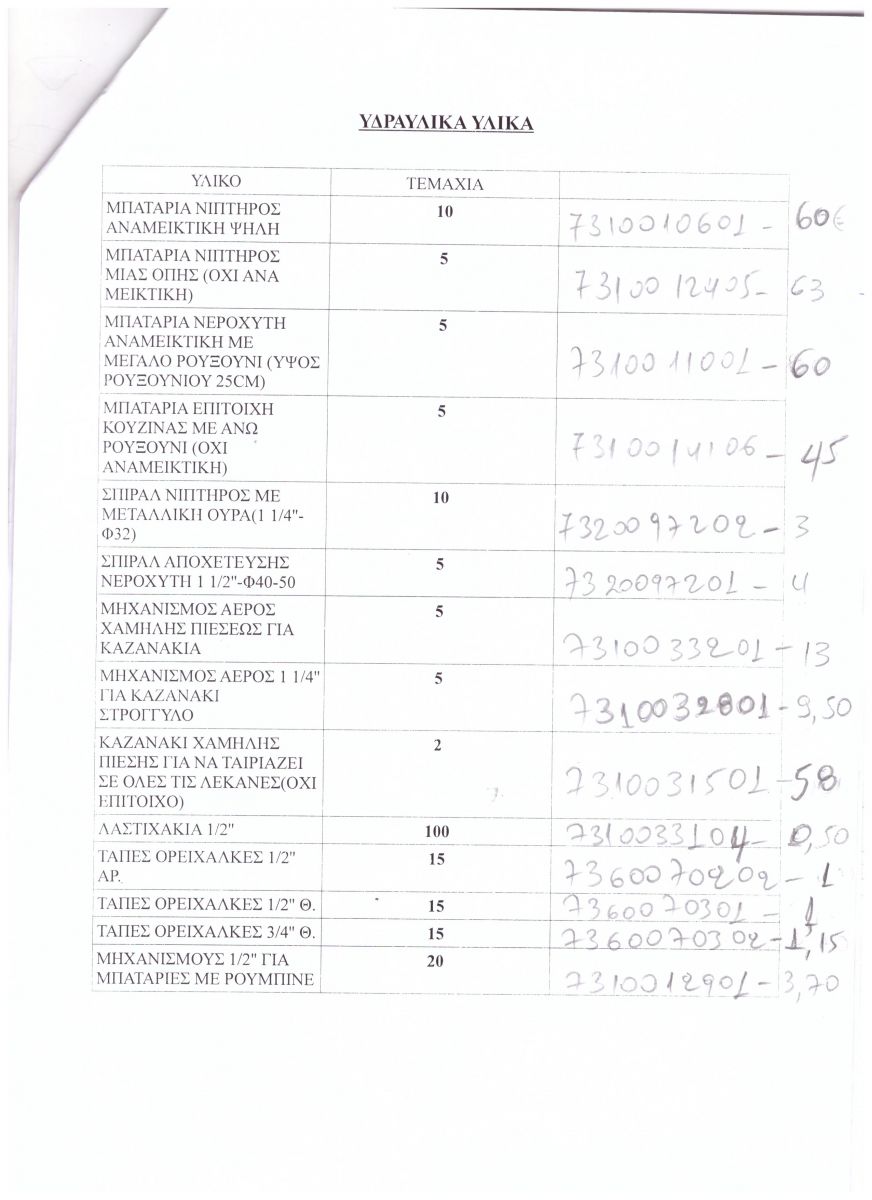 ΥΔΡΑΥΛΙΚΑ ΥΛΙΚΑ
ΥΛΙΚΟ ΤΕΜΑΧΙΑ
ΜΠΑΤΑΡΙΑ ΝΙΠΤΗΡΟΣ 10
ΑΝΑΜΕΙΚΤΙΚΗ ΨΗΛΗ 7310010601 - 60€
ΜΠΑΤΑΡΙΑ ΝΙΠΤΗΡΟΣ 5
ΜΙΑΣ ΟΠΗΣ (ΟΧΙ ΑΝΑ
ΜΕΙΚΤΙΚΗ) 7310012405 - 63
ΜΠΑΤΑΡΙΑ ΝΕΡΟΧΥΤΗ 5
ΑΝΑΜΕΙΚΤΙΚΗ ΜΕ
ΜΕΓΑΛΟ ΡΟΥΞΟΥΝΙ (ΥΨΟΣ
ΡΟΥΞΟΥΝΙΟΥ 25CM) 7310011001 - 60
ΜΠΑΤΑΡΙΑ ΕΠΙΤΟΙΧΗ 5
ΚΟΥΖΙΝΑΣ ΜΕ ΑΝΩ
ΡΟΥΞΟΥΝΙ (ΟΧΙ
ΑΝΑΜΕΙΚΤΙΚΗ) 7310014106 - 45
ΣΠΙΡΑΛ ΝΙΠΤΗΡΟΣ ΜΕ 10
ΜΕΤΑΛΛΙΚΗ ΟΥΡΑ(1 1/4"-
Φ32) 7320097202 - 3
ΣΠΙΡΑΛ ΑΠΟΧΕΤΕΥΣΗΣ 5
ΝΕΡΟΧΥΤΗ 1 1/2"-Φ40-50 7320097201 - 4
ΜΗΧΑΝΙΣΜΟΣ ΑΕΡΟΣ 5
ΧΑΜΗΛΗΣ ΠΙΕΣΕΩΣ ΓΙΑ
ΚΑΖΑΝΑΚΙΑ 7310033201 - 13
ΜΗΧΑΝΙΣΜΟΣ ΑΕΡΟΣ 1 1/4" 5
ΓΙΑ ΚΑΖΑΝΑΚΙ
ΣΤΡΟΓΓΥΛΟ 7310032801 - 9,50
ΚΑΖΑΝΑΚΙ ΧΑΜΗΛΗΣ 2
ΠΙΕΣΗΣ ΓΙΑ ΝΑ ΤΑΙΡΙΑΖΕΙ
ΣΕ ΟΛΕΣ ΤΙΣ ΛΕΚΑΝΕΣ(ΟΧΙ
ΕΠΙΤΟΙΧΟ) 7310031501 - 58
ΛΑΣΤΙΧΑΚΙΑ 1/2" 100 7310033104 - 0,50
ΤΑΠΕΣ ΟΡΕΙΧΑΛΚΕΣ 1/2" 15
ΑΡ. 7360070202 - 1
ΤΑΠΕΣ ΟΡΕΙΧΑΛΚΕΣ 1/2" Θ. 15 7360070301 - 1
ΤΑΠΕΣ ΟΡΕΙΧΑΛΚΕΣ 3/4" Θ. 15 7360070302 - 1,15
ΜΗΧΑΝΙΣΜΟΥΣ 1/2" ΓΙΑ 20
ΜΠΑΤΑΡΙΕΣ ΜΕ ΡΟΥΜΠΙΝΕ 7310012901 - 3,70